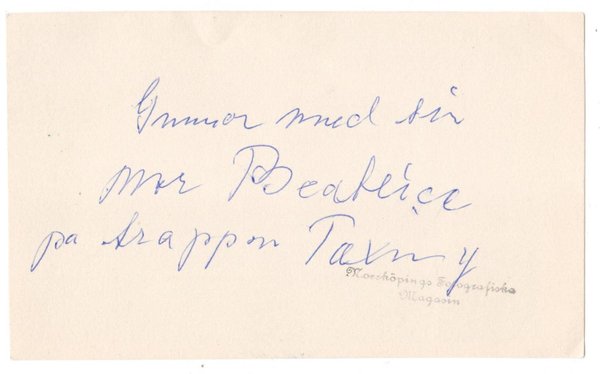 Gunnar med sin
mor Beatrice
på trappan Taxn y
Norrköpings Fotografiska
Magasin